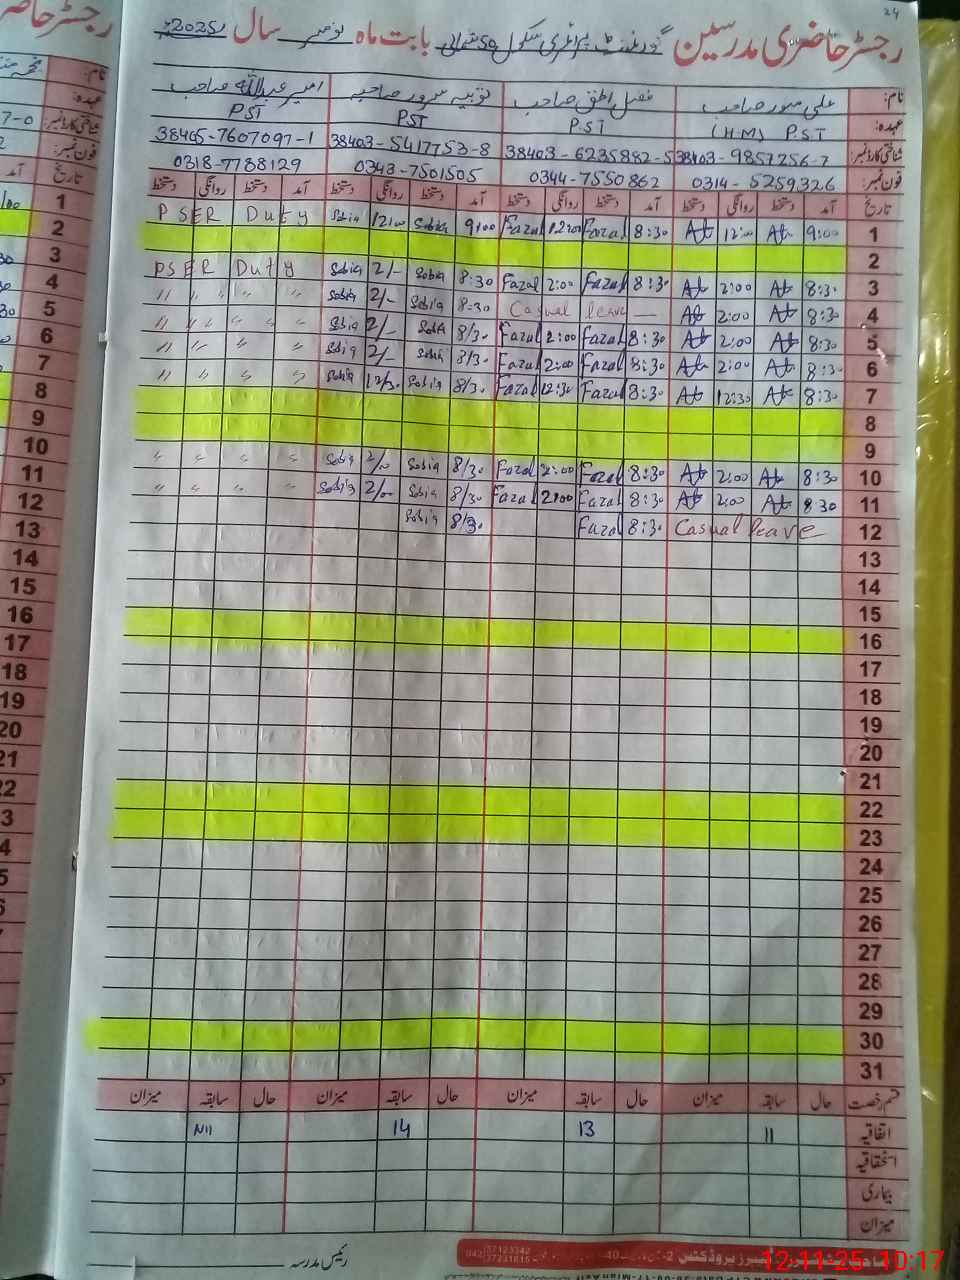 24
رجسٹر حاضری مدرسین گورنمنٹ پرائمری سکول 50 شمالی بابت ماہ نومبر سال 2025ء
نام: علی منور صاحب فضل الحق صاحب ثوبیہ سرور صاحبہ امیر عبداللہ صاحب
عہدہ: (H.M) P.S.T P.S.T PST PST
شناختی کارڈ نمبر: 38403-9857256-7 38403-6235882-5 38403-5417753-8 38405-7607097-1
فون نمبر: 0314-5259326 0344-7550862 0343-7501505 0318-7788129
تاریخ آمد دستخط روانگی دستخط آمد دستخط روانگی دستخط آمد دستخط روانگی دستخط آمد دستخط روانگی دستخط
1 9:00 12:00 8:30 Fazal 12:00 Fazal 9:00 Sobia 12:00 Sobia PSER Duty
2
3 8:30 2:00 8:30 Fazal 2:00 Fazal 8:30 Sobia 2/- Sobia PSER Duty
4 8:30 2:00 Casual leave — 8-30 Sobia 2/- Sobia " " " "
5 8:30 2:00 8:30 Fazal 2:00 Fazal 8/30 2/- Sobia " " " "
6 8:30 2:00 8:30 Fazal 2:00 Fazal 8/30 Sobia 2/- Sobia " " " "
7 8:30 12:30 8:30 Fazal 12:30 Fazal 8/30 Sobia 12/30 Sobia " " " "
8
9
10 8:30 2:00 8:30 Fazal 2:00 Fazal 8/30 Sobia 2/00 Sobia " " " "
11 8:30 2:00 8:30 Fazal 2:00 Fazal 8/30 Sobia 2/00 Sobia " " " "
12 Casual leave 8:30 Fazal 8/30 Sobia
13
14
15
16
17
18
19
20
21
22
23
24
25
26
27
28
29
30
31
قسم رخصت حال سابقہ میزان حال سابقہ میزان حال سابقہ میزان حال سابقہ میزان
اتفاقیہ 11 13 14 Nil
استحقاقیہ
بیماری
میزان
رئیس مدرسہ
12-11-25 10:17